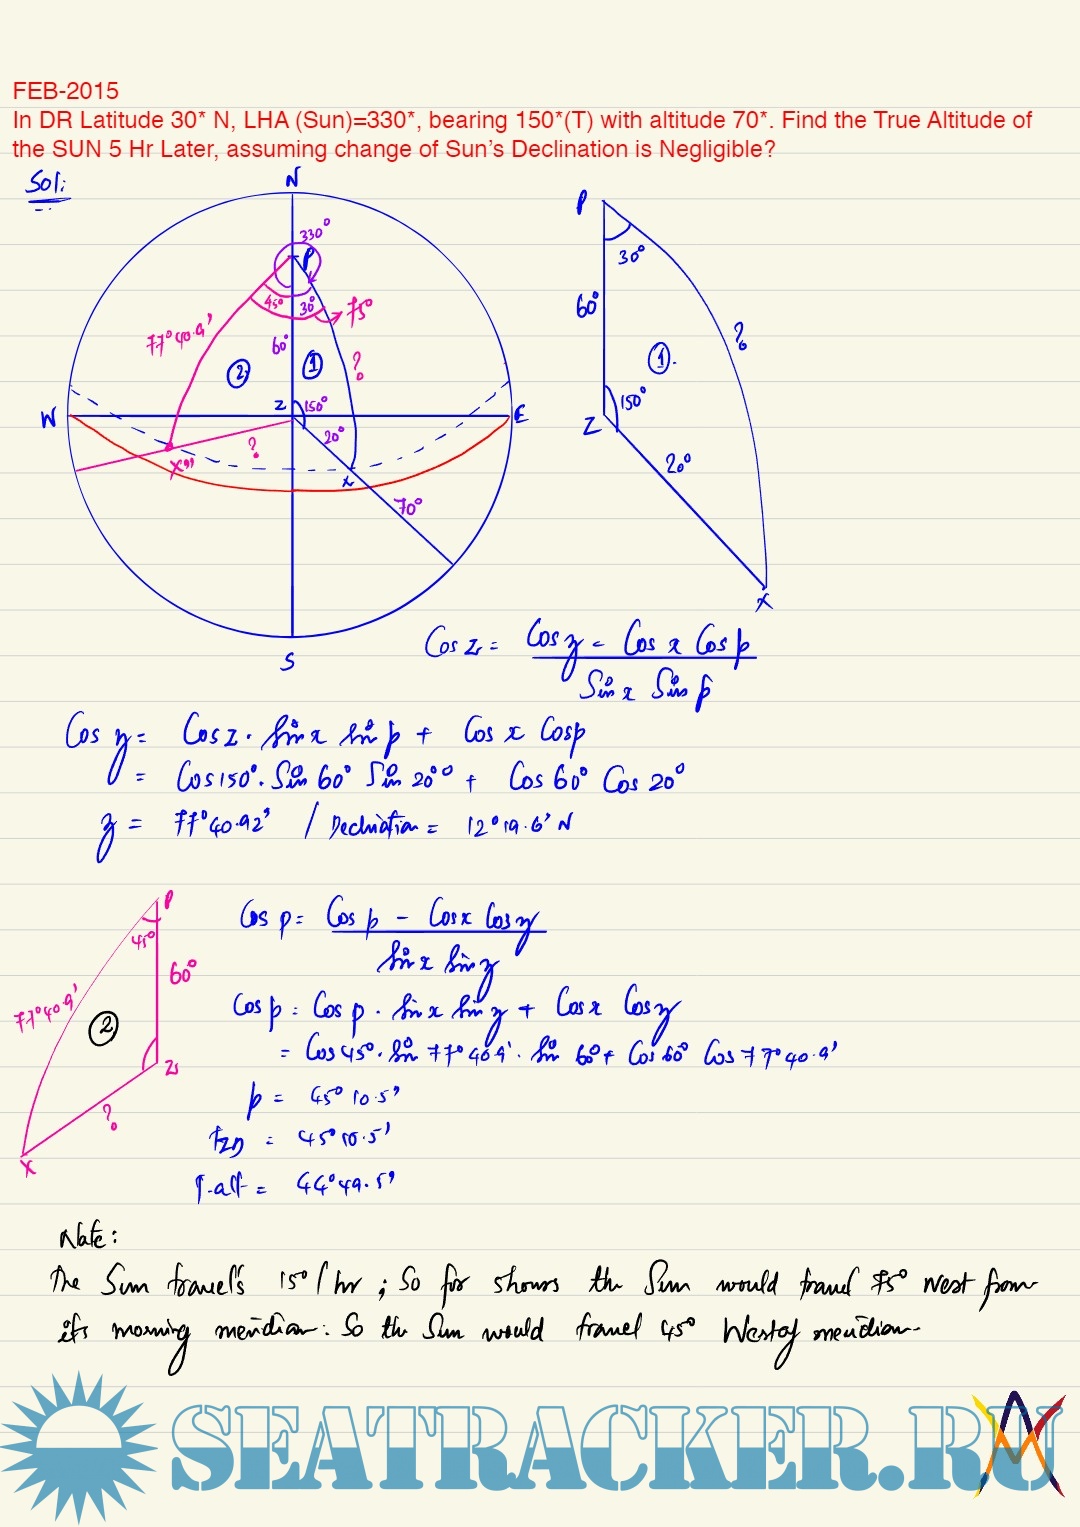 FEB-2015
In DR Latitude 30* N, LHA (Sun)=330*, bearing 150*(T) with altitude 70*. Find the True Altitude of
the SUN 5 Hr Later, assuming change of Sun's Declination is Negligible?
Sol:
N
330°
P
45°
30°
75°
77°40.9'
60°
?
2
1
W
Z
150°
E
20°
?
X"
x
70°
S
P
30°
60°
?
1.
150°
Z
20°
X
Cos z = Cos y - Cos x Cos p
Sin x Sin p
Cos y = Cos z . Sin x Sin p + Cos x Cos p
= Cos 150° . Sin 60° Sin 20° + Cos 60° Cos 20°
y = 77°40.92' / Declination = 12°19.6' N
P
45°
60°
77°40.9'
2
Z
?
X
Cos p = Cos p - Cos x Cos y
Sin x Sin y
Cos p = Cos p . Sin x Sin y + Cos x Cos y
= Cos 45° . Sin 77°40.9' . Sin 60° + Cos 60° Cos 77°40.9'
p = 45°10.5'
TZD = 45°10.5'
T.alt = 44°49.5'
Note:
The Sun travel's 15°/hr ; So for 5hours the Sun would travel 75° West from
its morning meridian. So the Sun would travel 45° West of meridian.
SEATRACKER.RU